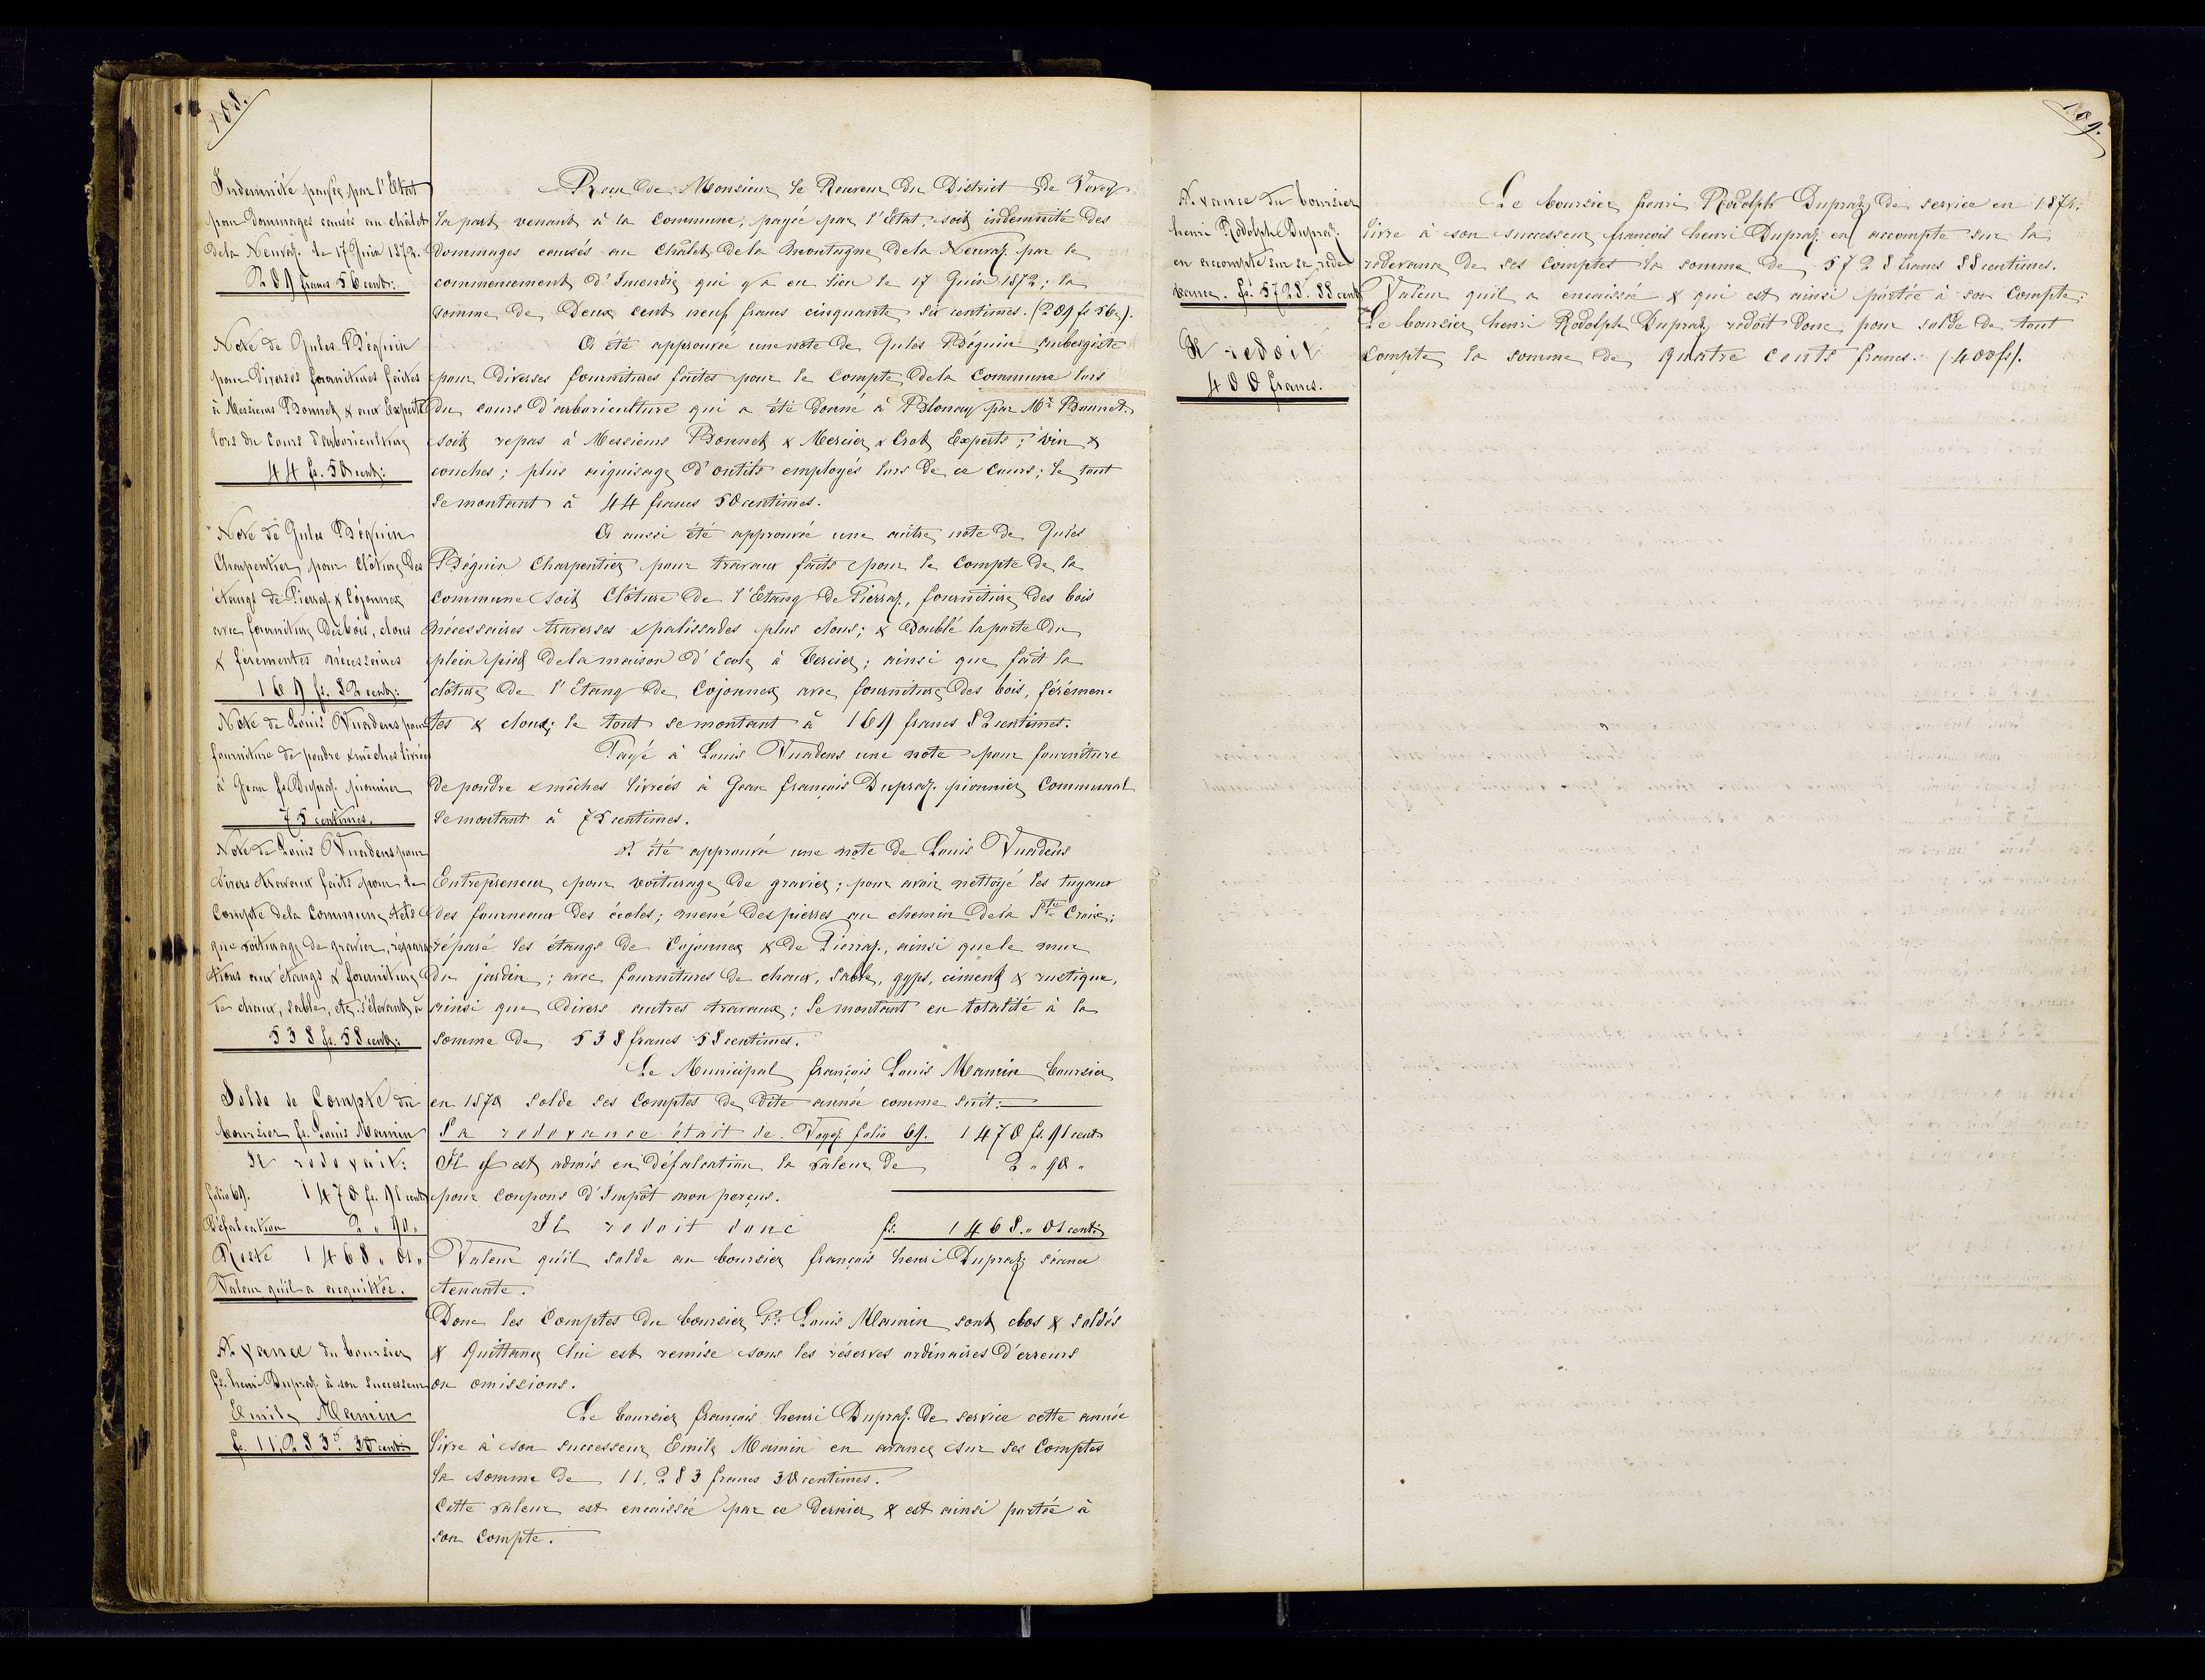 108.
Indemnité payée par l'Etat
pour dommages causés au châlet
dela Neuvaz. le 17 Juin 1872.
209 francs 56 cent:
Note de Jules Béguin
pour diverses fournitures faites
à Messieurs Bonnet & aux Experts
lors du Cours d'arboriculture
44 fs. 50 cent:
Note de Jules Béguin
Charpentier pour clôture des
étangs de Pierraz. & Cojonnex
avec fourniture des bois, clous
& férementes nécessaires
169 fs. 82 cent:
Note de Louis Vuadens pour
fourniture de poudre & mêches livrées
à Jean fs. Dupraz. pionnier
75 centimes.
Note de Louis Vuadens pour
divers travaux faits pour le
Compte dela Commune, tels
que voiturage de gravier, répara
tions aux étangs & fourniture
de chaux, sable, etc. s'élevant à
538 fs. 58 cent:
Solde de Compte du
boursier fs. Louis Mamin
Il redevait:
folio 69. 1470 fs. 91 cent:
Défalcation 2 " 90 "
Reste 1468 " 01 "
Valeur qu'il a acquittée.
Avance du boursier
fs. henri Dupraz. à son successeur
Emile Mamin
fs. 11,283. 30 cent:
Reçu de Monsieur le Receveur du District de Vevey
la part venant à la Commune, payée par l'Etat, soit indemnité des
dommages causés au Châlet dela Montagne dela Neuvaz. par le
commencement d'Incendie qui y a eu lieu le 17 Juin 1872; la
somme de Deux cent neuf francs cinquante six centimes. (209 fs 56 c).
A été approuvée une note de Jules Béguin aubergiste
pour diverses fournitures faites pour le compte dela Commune lors
du cours d'arboriculture qui a été donné à Blonay par Mr. Bonnet.
soit repas à Messieurs Bonnet & Mercier & Crot Experts; vin &
couches; plus aiguisage d'outils employés lors de ce Cours; le tout
se montant à 44 francs 50 centimes.
A aussi été approuvée une autre note de Jules
Béguin Charpentier pour travaux faits pour le Compte de la
Commune soit Clôture de l'Etang de Pierraz., fourniture des bois
nécessaires traverses & palissades plus clous; & doublé la porte du
plein pied dela maison d'école à Tercier; ainsi que fait la
clôture de l'Etang de Cojonnex avec fourniture des bois, féremen-
tes & clous; le tout se montant à 169 francs 82 centimes.
Payé à Louis Vuadens une note pour fourniture
de poudre & mêches livrées à Jean françois Dupraz. pionnier Communal
se montant à 75 centimes.
A été approuvé une note de Louis Vuadens
Entrepreneur pour voiturage de gravier; pour avoir nettoyé les tuyaux
des fourneaux des écoles; mené des pierres au chemin dela Ste Croix;
réparé les étangs de Cojonnex & de Pierraz., ainsi que le mur
du jardin; avec fournitures de chaux, sable, gyps, ciment & rustique,
ainsi que divers autres travaux; se montant en totalité à la
somme de 538 francs 58 centimes.
Le Municipal françois Louis Mamin boursier
en 1870 solde ses Comptes de dite année comme suit:
Sa redevance était de. Voyez folio 69. 1470 fs. 91 cent:
Il y est admis en défalcation la valeur de 2 " 90 "
pour coupons d'Impôt non perçus.
Il redoit donc fs. 1468 " 01 cent:
Valeur qu'il solde au boursier françois henri Dupraz séance
tenante.
Donc les Comptes du boursier Fs. Louis Mamin sont clos & soldés
& Quittance lui est remise sous les réserves ordinaires d'erreurs
ou omissions.
Le boursier françois henri Dupraz. de service cette année
livre à son successeur Emile Mamin en avance sur ses Comptes
la somme de 11,283 francs 30 centimes.
Cette valeur est encaissée par ce dernier & est ainsi portée à
son Compte.
109.
Avance du boursier
henri Rodolphe Dupraz:
en accompte sur sa rede
vance. fs. 5728. 88 cent
Il redoit
400 francs.
Le boursier henri Rodolph Dupraz de service en 1871.
livre à son successeur françois henri Dupraz. en accompte sur la
redevance de ses Comptes la somme de 5728 francs 88 centimes.
Valeur qu'il a encaissée & qui est ainsi portée à son Compte.
Le boursier henri Rodolph Dupraz redoit donc pour solde de tout
Compte la somme de quatre cents francs. (400 fs).